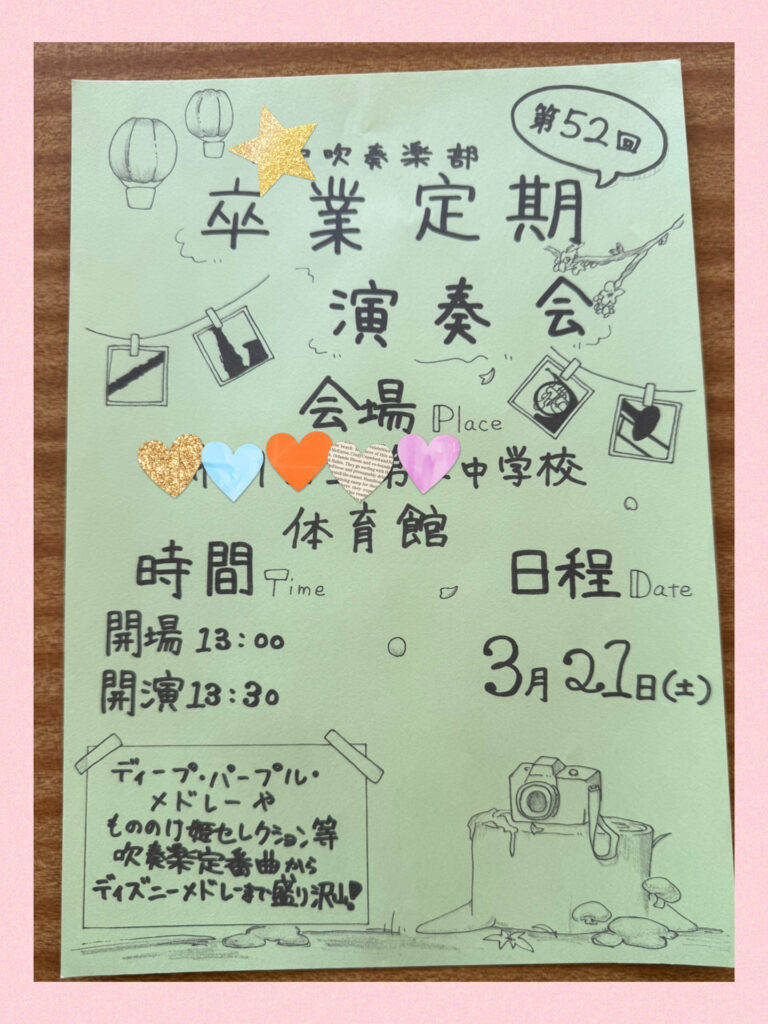 第52回
吹奏楽部
卒業定期
演奏会
会場 Place
中学校
体育館
時間 Time
開場 13:00
開演 13:30
日程 Date
3月21日(土)
ディープ・パープル・
メドレーや
もののけ姫セレクション等
吹奏楽定番曲から
ディズニーメドレーまで盛り沢山!